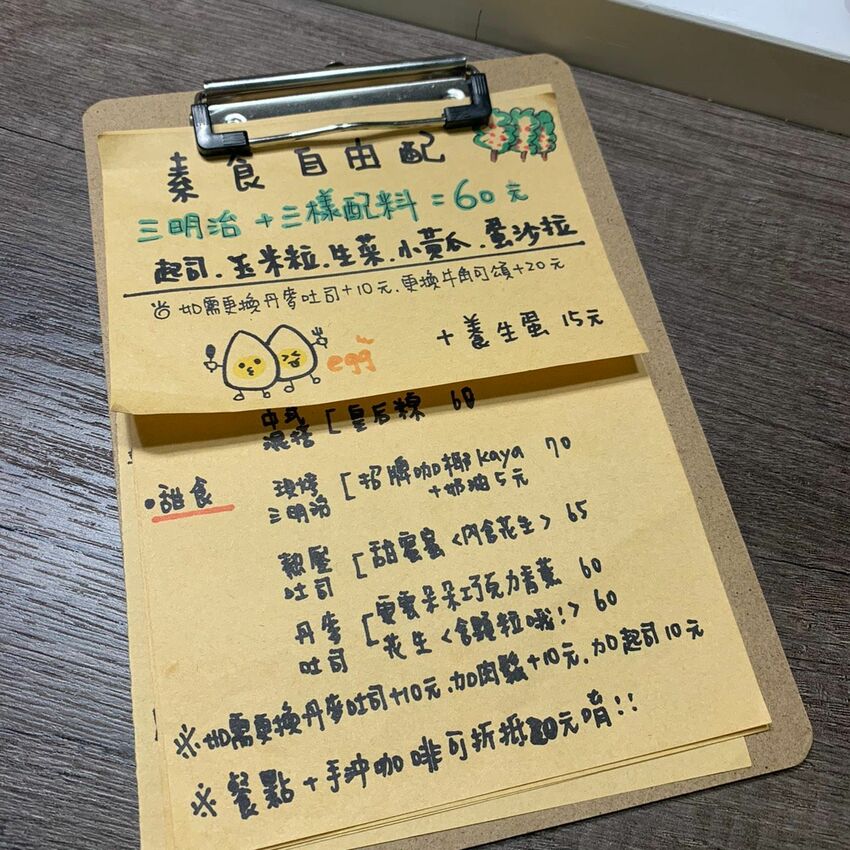 素食自由配
三明治+三樣配料=60元
起司.玉米粒.生菜.小黃瓜.蛋沙拉
如需更換丹麥吐司+10元.更換牛角可頌+20元
+養生蛋 15元
egg
中式 [皇后粽 60
●甜食 現烤三明治 [招牌咖椰kaya 70
+奶油5元
熱壓吐司 [甜蜜蜜<內含花生> 65
丹麥吐司 [雲雲朵朵巧克力青醬 60
花生<含顆粒哦!> 60
※如需更換丹麥吐司+10元.加肉鬆+10元.加起司10元
※餐點+手沖咖啡可折抵20元唷!!